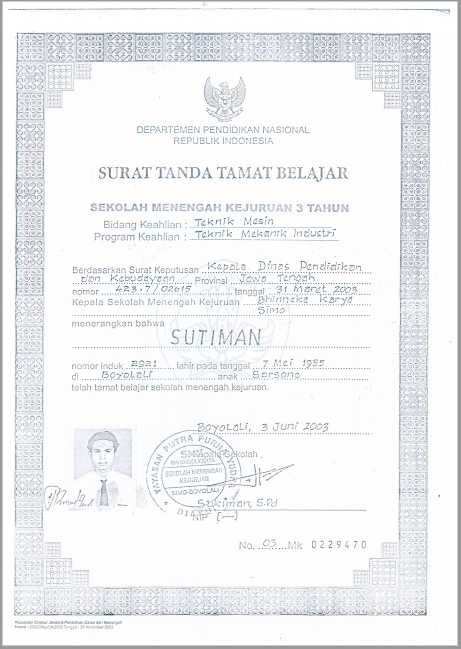 DEPARTEMEN PENDIDIKAN NASIONAL
REPUBLIK INDONESIA
SURAT TANDA TAMAT BELAJAR
SEKOLAH MENENGAH KEJURUAN 3 TAHUN
Bidang Keahlian : Teknik Mesin
Program Keahlian : Teknik Mekanik Industri
Berdasarkan Surat Keputusan Kepala Dinas Pendidikan
dan Kebudayaan Provinsi Jawa Tengah
nomor 423.7/02615 tanggal 31 Maret 2003
Kepala Sekolah Menengah Kejuruan Bhinneka Karya
Simo
menerangkan bahwa
SUTIMAN
nomor induk lahir pada tanggal 7 Mei 1985
di Boyolali anak Sarsono
telah tamat belajar sekolah menengah kejuruan.
Boyolali, 3 Juni 2003
Kepala Sekolah,
YAYASAN PUTRA PURNA YUDHA
SEKOLAH MENENGAH
KEJURUAN
SIMO-BOYOLALI
Sukiman, S.Pd
NIP (—)
No. 03 Mk 0229470
Keputusan Direktur Jenderal Pendidikan Dasar dan Menengah